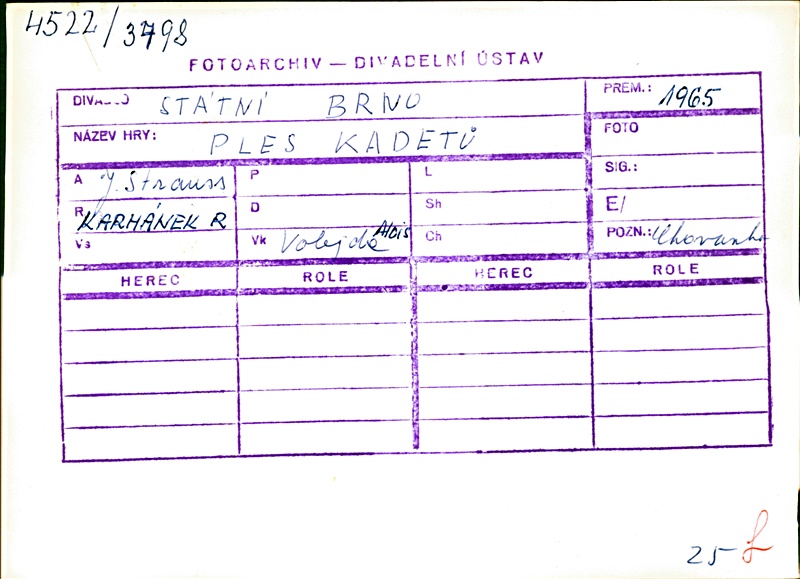 4522/3798
FOTOARCHIV — DIVADELNÍ ÚSTAV
DIVADLO STÁTNÍ BRNO
PREM.: 1965
NÁZEV HRY: PLES KADETŮ
FOTO
A J. Strauss
P
L
SIG.:
R KARHÁNEK R
D
Sh
E/
Vs
Vk Volejda Alois
Ch
POZN.:
HEREC ROLE HEREC ROLE
25